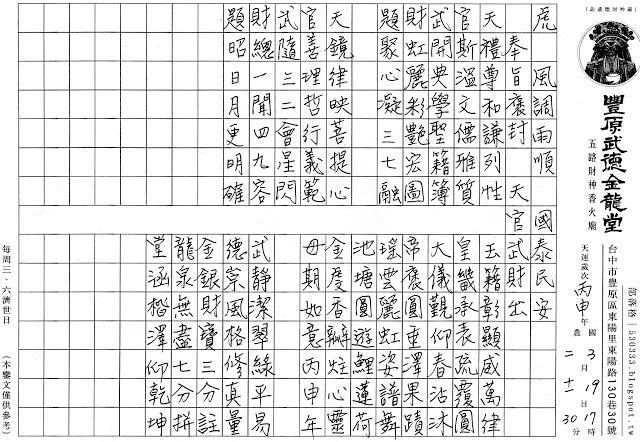 (函虛壇財神爺)
豐原武德金龍堂
五路財神香火廟
台中市豐原區東陽里東陽路130巷30號
部落格 | 530333.blogspot.tw
天運歲次丙申年 國 3月19日17時
農 二 十一 30分
虎 風調雨順 國泰民安
奉旨褒封 天官武財出
天禮尊和謙列性
官斯溫文儒雅質
武開典學聖籍簿
財虹麗彩艷宏圖
題聚心凝三七融
天鏡律映菩提心
官善理哲行義範
武隨三二會星閃
財總一聞四九容
題昭日月更明確
玉籍彰顯威萬律
皇畿承表疏覆圓
大儀觀仰春沾沐
帝褒圓重澤果蹟
瑤雲麗虹姿譜舞
池塘圓遊鯉蓮荷
金度香瓣炷心靈
毋期如意丙申年
武靜潔翠綠平易
德宗風格修真量
金銀財寶三分註
龍泉無盡七分拼
堂涵楷澤仰乾坤
每周三、六濟世日
(本鸞文僅供參考)